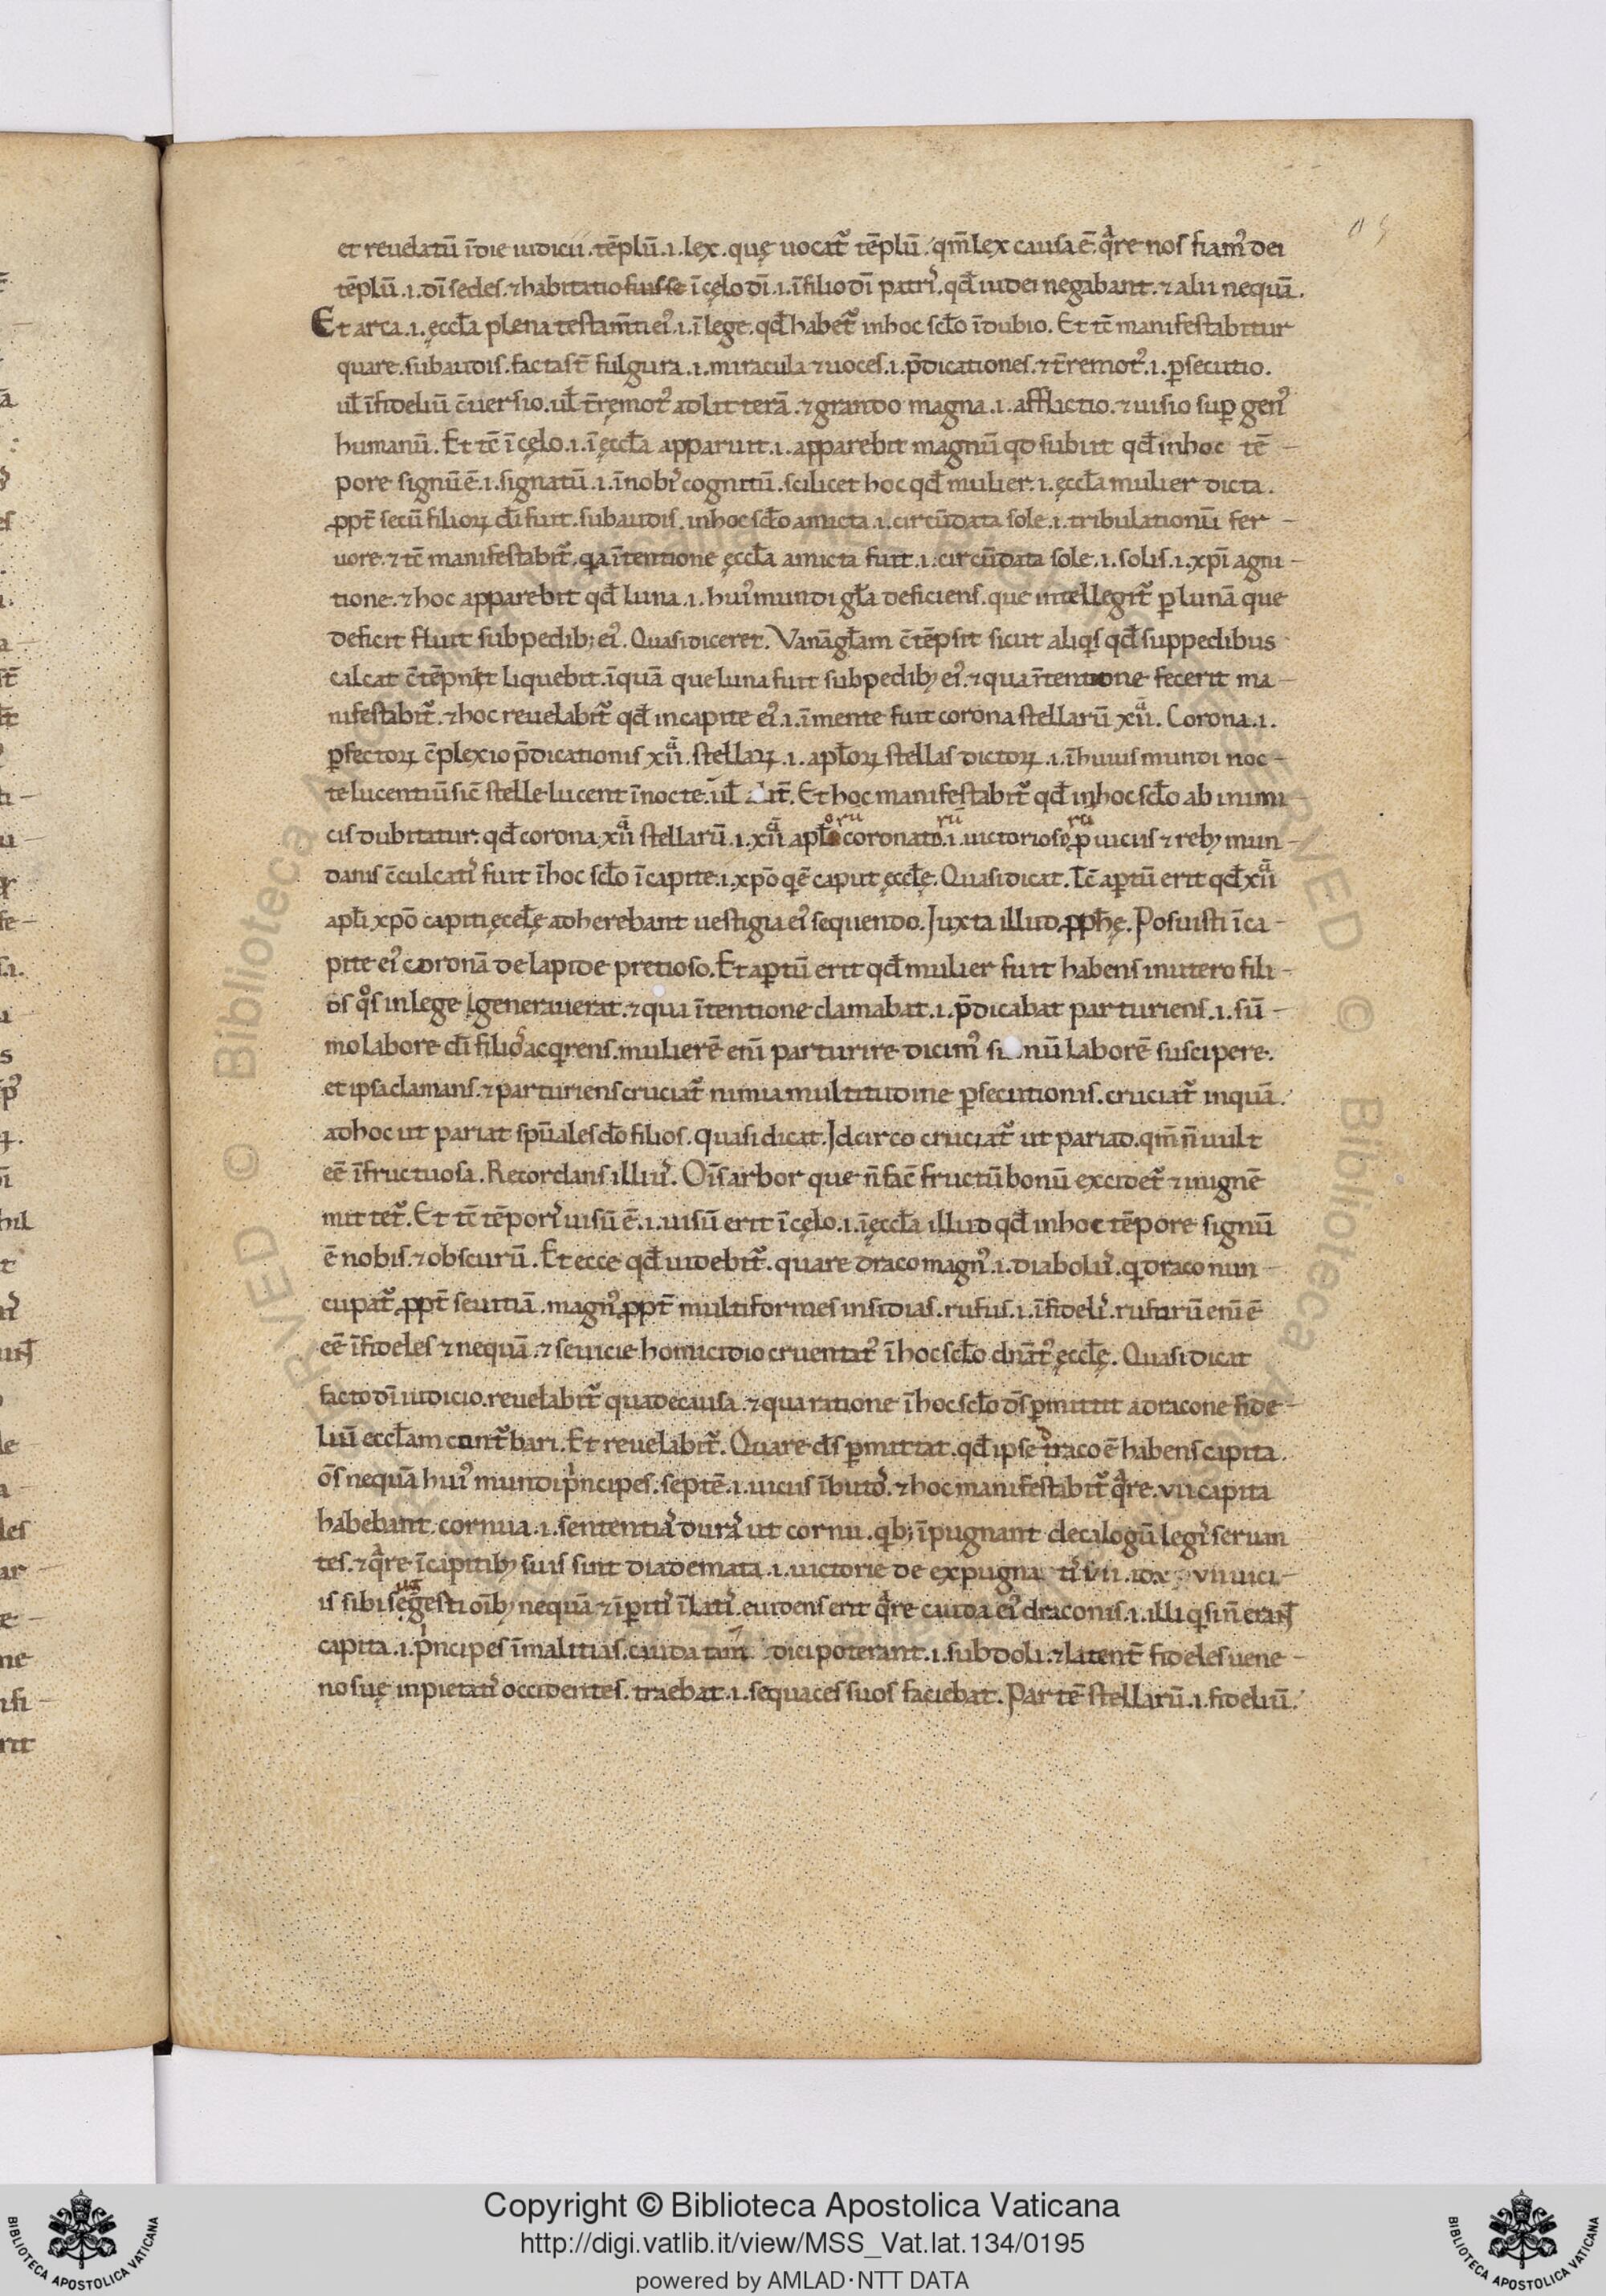 et reuelatū ī die iudicii. tēplū .i. lex. quę uocat᷑ tēplū. qm̄ lex causa ē q̄re nos fiam᷒ dei
tēplū .i. dī sedes. ⁊ habitatio fuisse ī cęlo dī .i. ī filio dī patri᷒. qđ iudei negabant. ⁊ alii nequā.
Et arca .i. ęccła plena testam̄ti ei᷒ .i. ī lege. qđ habet᷑ in hoc scło ī dubio. Et tc̄ manifestabitur
quare. subaudis. facta st̄ fulgura .i. miracula ⁊ uoces .i. p̄dicationes. ⁊ t̄remot᷒ .i. ꝑsecutio.
uł īfideliū c̄uersio. uł t̄remot᷒ ad litterā. ⁊ grando magna .i. afflictio. ⁊ uisio suꝑ gen᷒
humanū. Et tc̄ ī cęlo .i. ī ęccła apparuit .i. apparebit magnū qd subiit qđ in hoc tē-
pore signū ē .i. signatū .i. ī nobi᷒ cognitū. scilicet hoc qđ mulier .i. ęccła mulier dicta.
ꝓpt̄ secū filioꝝ dī fuit. subaudis. in hoc scło amicta .i. circūdata sole .i. tribulationū fer-
uore. ⁊ tc̄ manifestabit᷑. qa ītentione ęccła amicta fuit .i. circūdata sole .i. solis .i. xpī agni-
tione. ⁊ hoc apparebit qđ luna .i. hui᷒ mundi gła deficiens. que intellegit᷑ ꝑ lunā que
deficit fluit sub pedib; ei᷒. Quasi diceret. Vanā głam c̄tēpsit sicut aliqs qđ sup pedibus
calcat c̄tēpnit liquebit. īquā que luna fuit sub pedibꝫ ei᷒. ⁊ qua ītentione fecerit ma-
nifestabit᷑. ⁊ hoc reuelabit᷑ qđ in capite ei᷒ .i. ī mente fuit corona stellarū xii. Corona .i.
ꝑfectoꝝ c̄plexio p̄dicationis xii. stellaꝝ .i. apłoꝝ stellas dictoꝝ .i. ī huius mundi noc-
te lucentiū sic̄ stelle lucent ī nocte. uł Et hoc manifestabit᷑ qđ in hoc scło ab inimi-
cis dubitatur. qđ corona xii stellarū .i. xii apło orū coronato rū .i. uictorioso rū ꝑ uiciis ⁊ rebꝫ mun-
danis c̄culcati᷒ fuit ī hoc scło ī capite .i. xpō qē caput ęccłę. Quasi dicat. Tc̄ aꝑtū erit qđ xii
apłi xpō capiti ęccłę adherebant uestigia ei᷒ sequendo. Juxta illud ꝓpħę. Posuisti ī ca-
pite ei᷒ coronā de lapide pretioso. Et aꝑtū erit qđ mulier fuit habens in utero fili-
os qͦs in lege generauerat. ⁊ qua ītentione clamabat .i. p̄dicabat parturiens .i. sū-
mo labore dī filios acqrens. mulierē enī parturire dicim᷒ laborē suscipere.
et ipsa clamans. ⁊ parturiens cruciat᷑ nimia multitudine ꝑsecutionis. cruciat᷑ inquā.
ad hoc ut pariat spūales dō filios. quasi dicat. Jdcirco cruciat᷑ ut pariad. qm̄ n̄ uult
eē īfructuosa. Recordans illiu᷒. Oīs arbor que n̄ fac̄ fructū bonū excidet᷑ ⁊ in ignē
mittet᷑. Et tc̄ tēpori᷒ uisū ē .i. uisū erit ī cęlo .i. ī ęccła illud qđ in hoc tēpore signū
ē nobis. ⁊ obscurū. Et ecce qđ uidebit᷑. quare draco magn᷒ .i. diabolu᷒. q draco nun-
cupat᷑ ꝓpt̄ seuitiā. magn᷒ ꝓpt̄ multiformes insidias. rufus .i. īfideli᷒. rufarū enī ē
eē īfideles ⁊ nequā. ⁊ seuicie homicidio cruentat᷒ ī hoc scło dn̄at᷒ ęccłę. Quasi dicat
facto dī iudicio. reuelabit᷑ qua de causa. ⁊ qua ratione ī hoc scło ds̄ ꝑmittit a dracone fide-
liū eccłam cont᷑bari. Et reuelabit᷑. Quare ds̄ ꝑmittat. qđ ipse draco ē habens capita.
os̄ nequā hui᷒ mundi pͥncipes. septē .i. uiciis ībuto᷒. ⁊ hoc manifestabit᷑ q̄re. vii capita
habebant. cornua .i. sententia᷒ dura᷒ ut cornu. qb; īpugnant decalogū legi᷒ seruan
tes. ⁊ q̄re ī capitibꝫ suis sint diademata .i. uictorie de expugna vii uici-
is sibi segesti oībꝫ nequā ⁊ īꝑiti᷒ īlati᷒. euidens erit q̄re cauda ei᷒ draconis .i. illi qsī n̄ erant
capita .i. pͥncipes ī malitias. cauda tam̄ dici poterant .i. subdoli. ⁊ latent̄ fideles uene-
no suę inpietati᷒ occidentes. traebat .i. sequaces suos faciebat. Partē stellarū .i. fideliū.
Copyright © Biblioteca Apostolica Vaticana
http://digi.vatlib.it/view/MSS_Vat.lat.134/0195
powered by AMLAD·NTT DATA